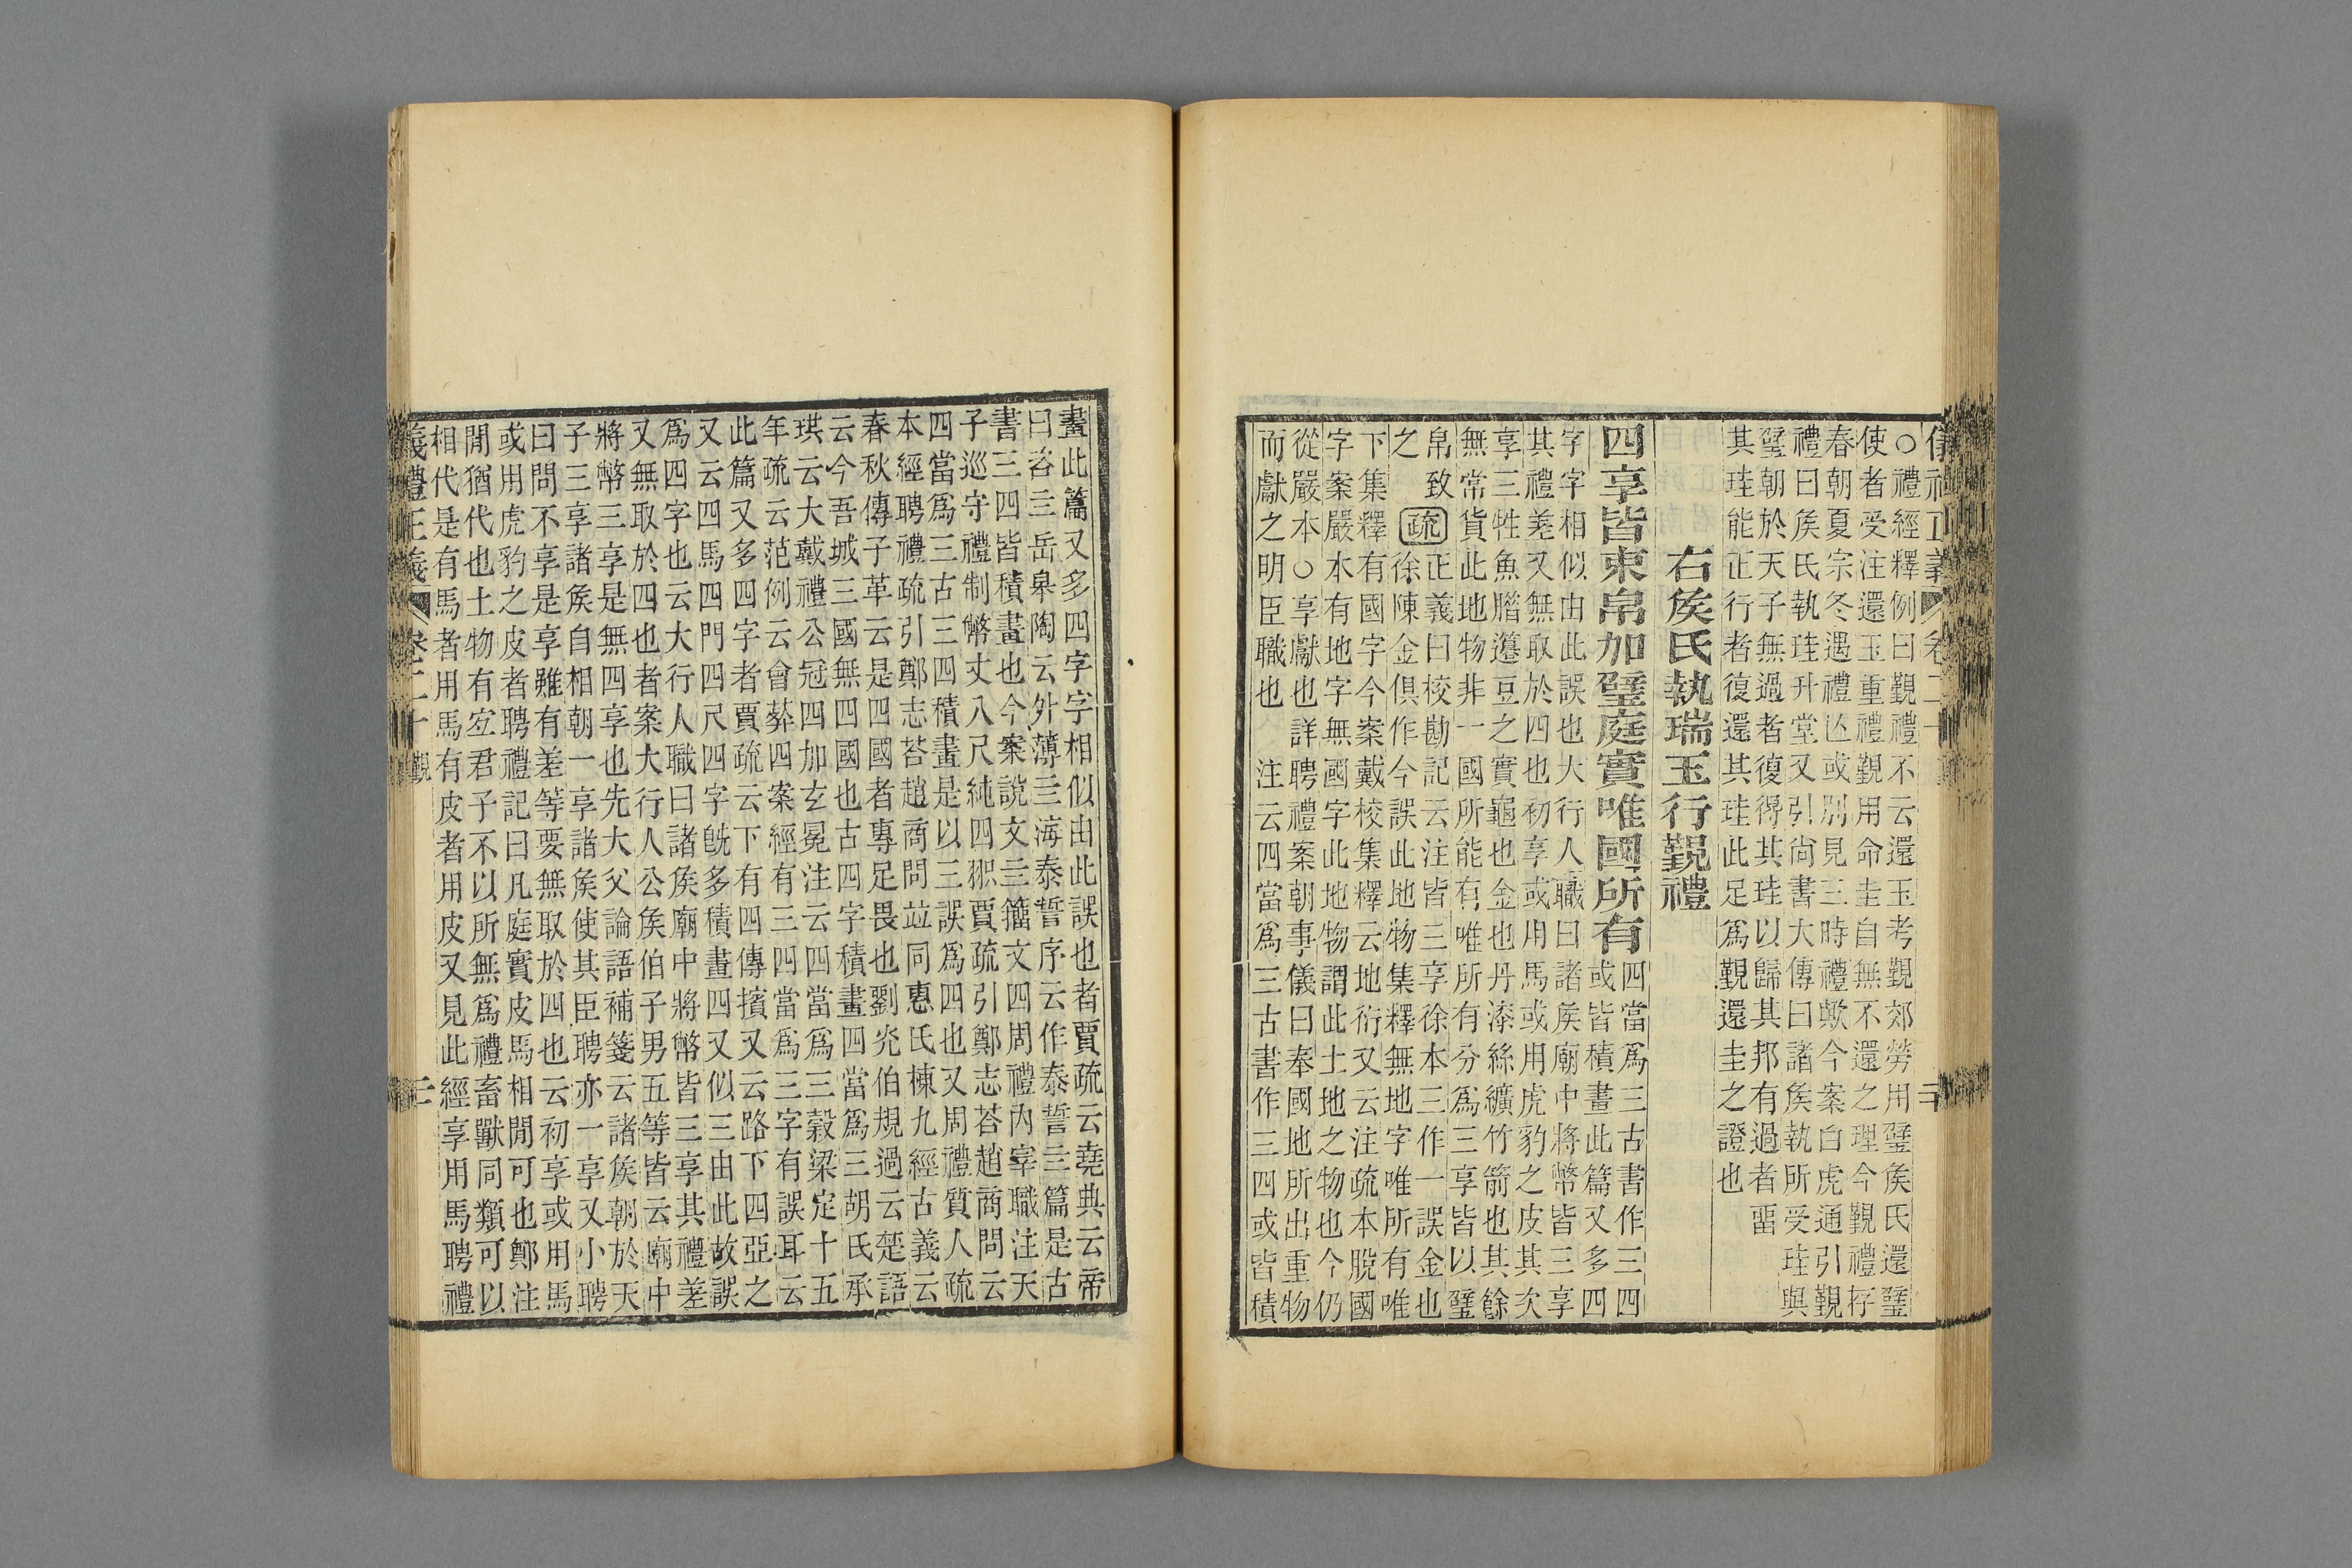 儀禮正義 卷二十 三
○禮經釋例曰覲禮不云還玉考覲郊勞用璧矦氏還璧
使者受注還玉重禮覲用命圭自無不還之理今覲禮存
春朝夏宗冬遇禮亾或別見三時禮歟今案白虎通引覲
禮曰矦氏執珪升堂又引尚書大傳曰諸矦執所受珪與
璧朝於天子無過者復得其珪以歸其邦有過者畱
其珪能正行者復還其珪此足爲覲還圭之證也
右矦氏執瑞玉行覲禮
四享皆束帛加璧庭實唯國所有
四當爲三古書作三四
或皆積畫此篇又多四
字字相似由此誤也大行人職曰諸矦廟中將幣皆三享
其禮差又無取於四也初享或用馬或用虎豹之皮其次
享三牲魚腊籩豆之實龜也金也丹漆絲纊竹箭也其餘
無常貨此地物非一國所能有唯所有分爲三享皆以璧
帛致
之
疏
正義曰校勘記云注皆三享徐本三作一誤金也
徐陳金俱作今誤此地物集釋無地字唯所有唯
下集釋有國字今案戴校集釋云地衍又云注疏本脫國
字案嚴本有地字無國字此地物謂此土地之物也今仍
從嚴本○享獻也詳聘禮案朝事儀曰奉國地所出重物
而獻之明臣職也 注云四當爲三古書作三四或皆積
畫此篇又多四字字相似由此誤也者賈疏云堯典云帝
曰咨亖岳皋陶云外薄亖海泰誓序云作泰誓亖篇是古
書三四皆積畫也今案說文亖籒文四周禮內宰職注天
子巡守禮制幣丈八尺純四賈疏引鄭志荅趙商問云
四當爲三古三四積畫是以三誤爲四也又周禮質人疏
本經聘禮疏引鄭志荅趙商問竝同惠氏棟九經古義云
春秋傳子革云是四國者專足畏也劉光伯規過云楚語
云今吾城三國無四國也古四字積畫四當爲三胡氏承
珙云大戴禮公冠四加玄冕注云四當爲三榖梁定十五
年疏云范例云會葬四案經有三四當爲三字有誤耳云
此篇又多四字者賈疏云下有四傳擯又云路下四亞之
又云四馬四門四尺四字旣多積畫四又似三由此故誤
爲四字也云大行人職曰諸矦廟中將幣皆三享其禮差
又無取於四也者案大行人公矦伯子男五等皆云廟中
將幣三享是無四享也先大父論語補箋云諸矦朝於天
子三享諸矦自相朝一享諸矦使其臣聘亦一享又小聘
曰問不享是享雖有差等要無取於四也云初享或用馬
或用虎豹之皮者聘禮記曰凡庭實皮馬相閒可也鄭注
閒猶代也土物有宐君子不以所無爲禮畜獸同類可以
相代是有馬者用馬有皮者用皮又見此經享用馬聘禮
儀禮正義 卷二十 覲 三